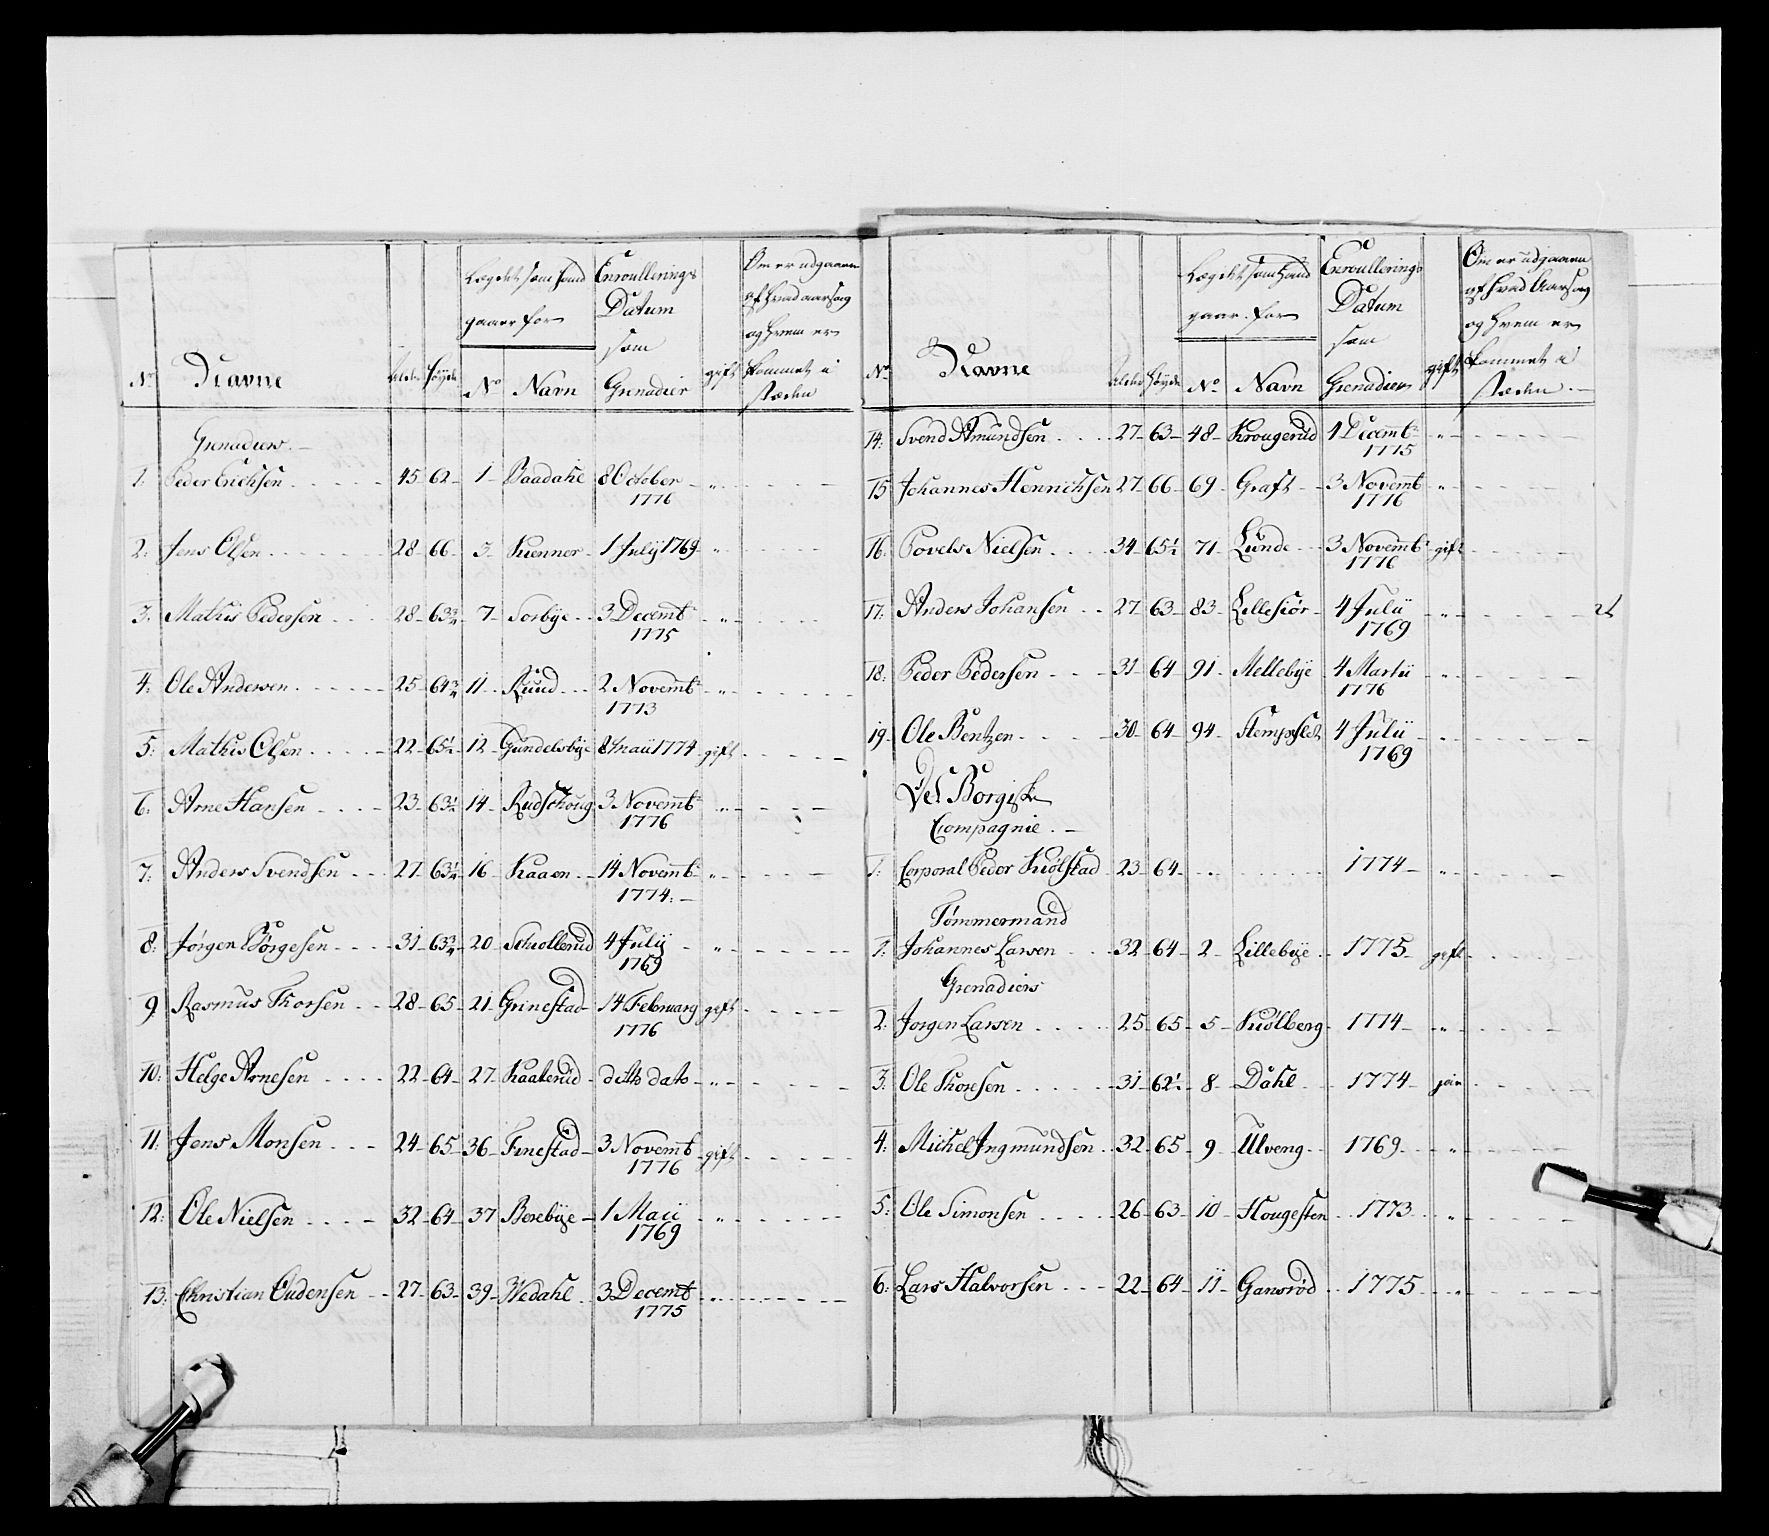 No Navne Alder Høyde Lægdet som hand gaaer for No Navn Enroullerings Datum som Grenadier gift Om er udgaaen af hvad aarsag og hvem er kommet i stæden
Grenadiers.
1. Peder Erichsen 45 62 1 Baadahl 8 October 1776 "
2. Jens Olsen 28 66 5 Kienner 1 July 1769 "
3. Mathis Pedersen 28 63 3/4 7 Sorbye 3 Decembr 1775 "
4. Ole Andersen 25 64 3/4 11 Ruud 2 Novembr 1773 "
5. Mathis Olsen 22 65 1/2 12 Gundelsbye 8 Maii 1774 gift
6. Arne Hansen 23 63 1/2 14 Rudschoug 3 Novembr 1776 "
7. Anders Svendsen 27 63 1/4 16 Kaaen 14 Novembr 1774 "
8. Jørgen Børgesen 31 63 3/4 20 Schiollerud 4 July 1769 "
9 Rasmus Thorsen 28 65 21 Grinestad 14 February 1776 gift
10. Helge Arnesen 22 64 27 Kaaterud dito dato "
11. Jens Monsen 24 65 36 Finestad 3 Novembr 1776 gift
12. Ole Nielsen 32 64 37 Berebye 1 Maii 1769 "
13. Christian Oudensen 27 63 39 Wedahl 3 Decembr 1775 "
No Navne Alder Høyde Lægdet som Hand gaar for No Navn Enroullerings Datum som Grenadier gift Om er udgaaen af hvad Aarsag og hvem er kommet i stæden
14. Svend Amundsen 27 63 48 Krougerud 1 Decembr 1775 "
15 Johannes Henrichsen 27 66 69 Graft 3 Novembr 1776 "
16. Povels Nielsen 34 65 1/2 71 Lunde 3 Novembr 1776 gift
17. Anders Johansen 27 63 83 Lillesiør 4 Julii 1769 "
18. Peder Pedersen 31 64 91 Mellebye 4 Martii 1776 "
19. Ole Bentzen 30 64 94 4 Julii 1769 "
Det Borgiske
Compagnie.
1. Corporal Peder Kiølstad 23 64 1774 "
Tømmermand
1. Johannes Larsen 32 64 2 Lillebye 1775 gift
Grenadiers
2. Jørgen Larsen 25 65 5 Kiølberg 1774 "
3. Ole Thoresen 31 62 1/2 8 Dahl 1774
4. Michel Ingmundsen 32 65 9 Ulveng 1769 "
5. Ole Simonsen 26 63 10 Hougesten 1773 "
6. Lars Halvorsen 22 64 11 Gansrød 1775 "